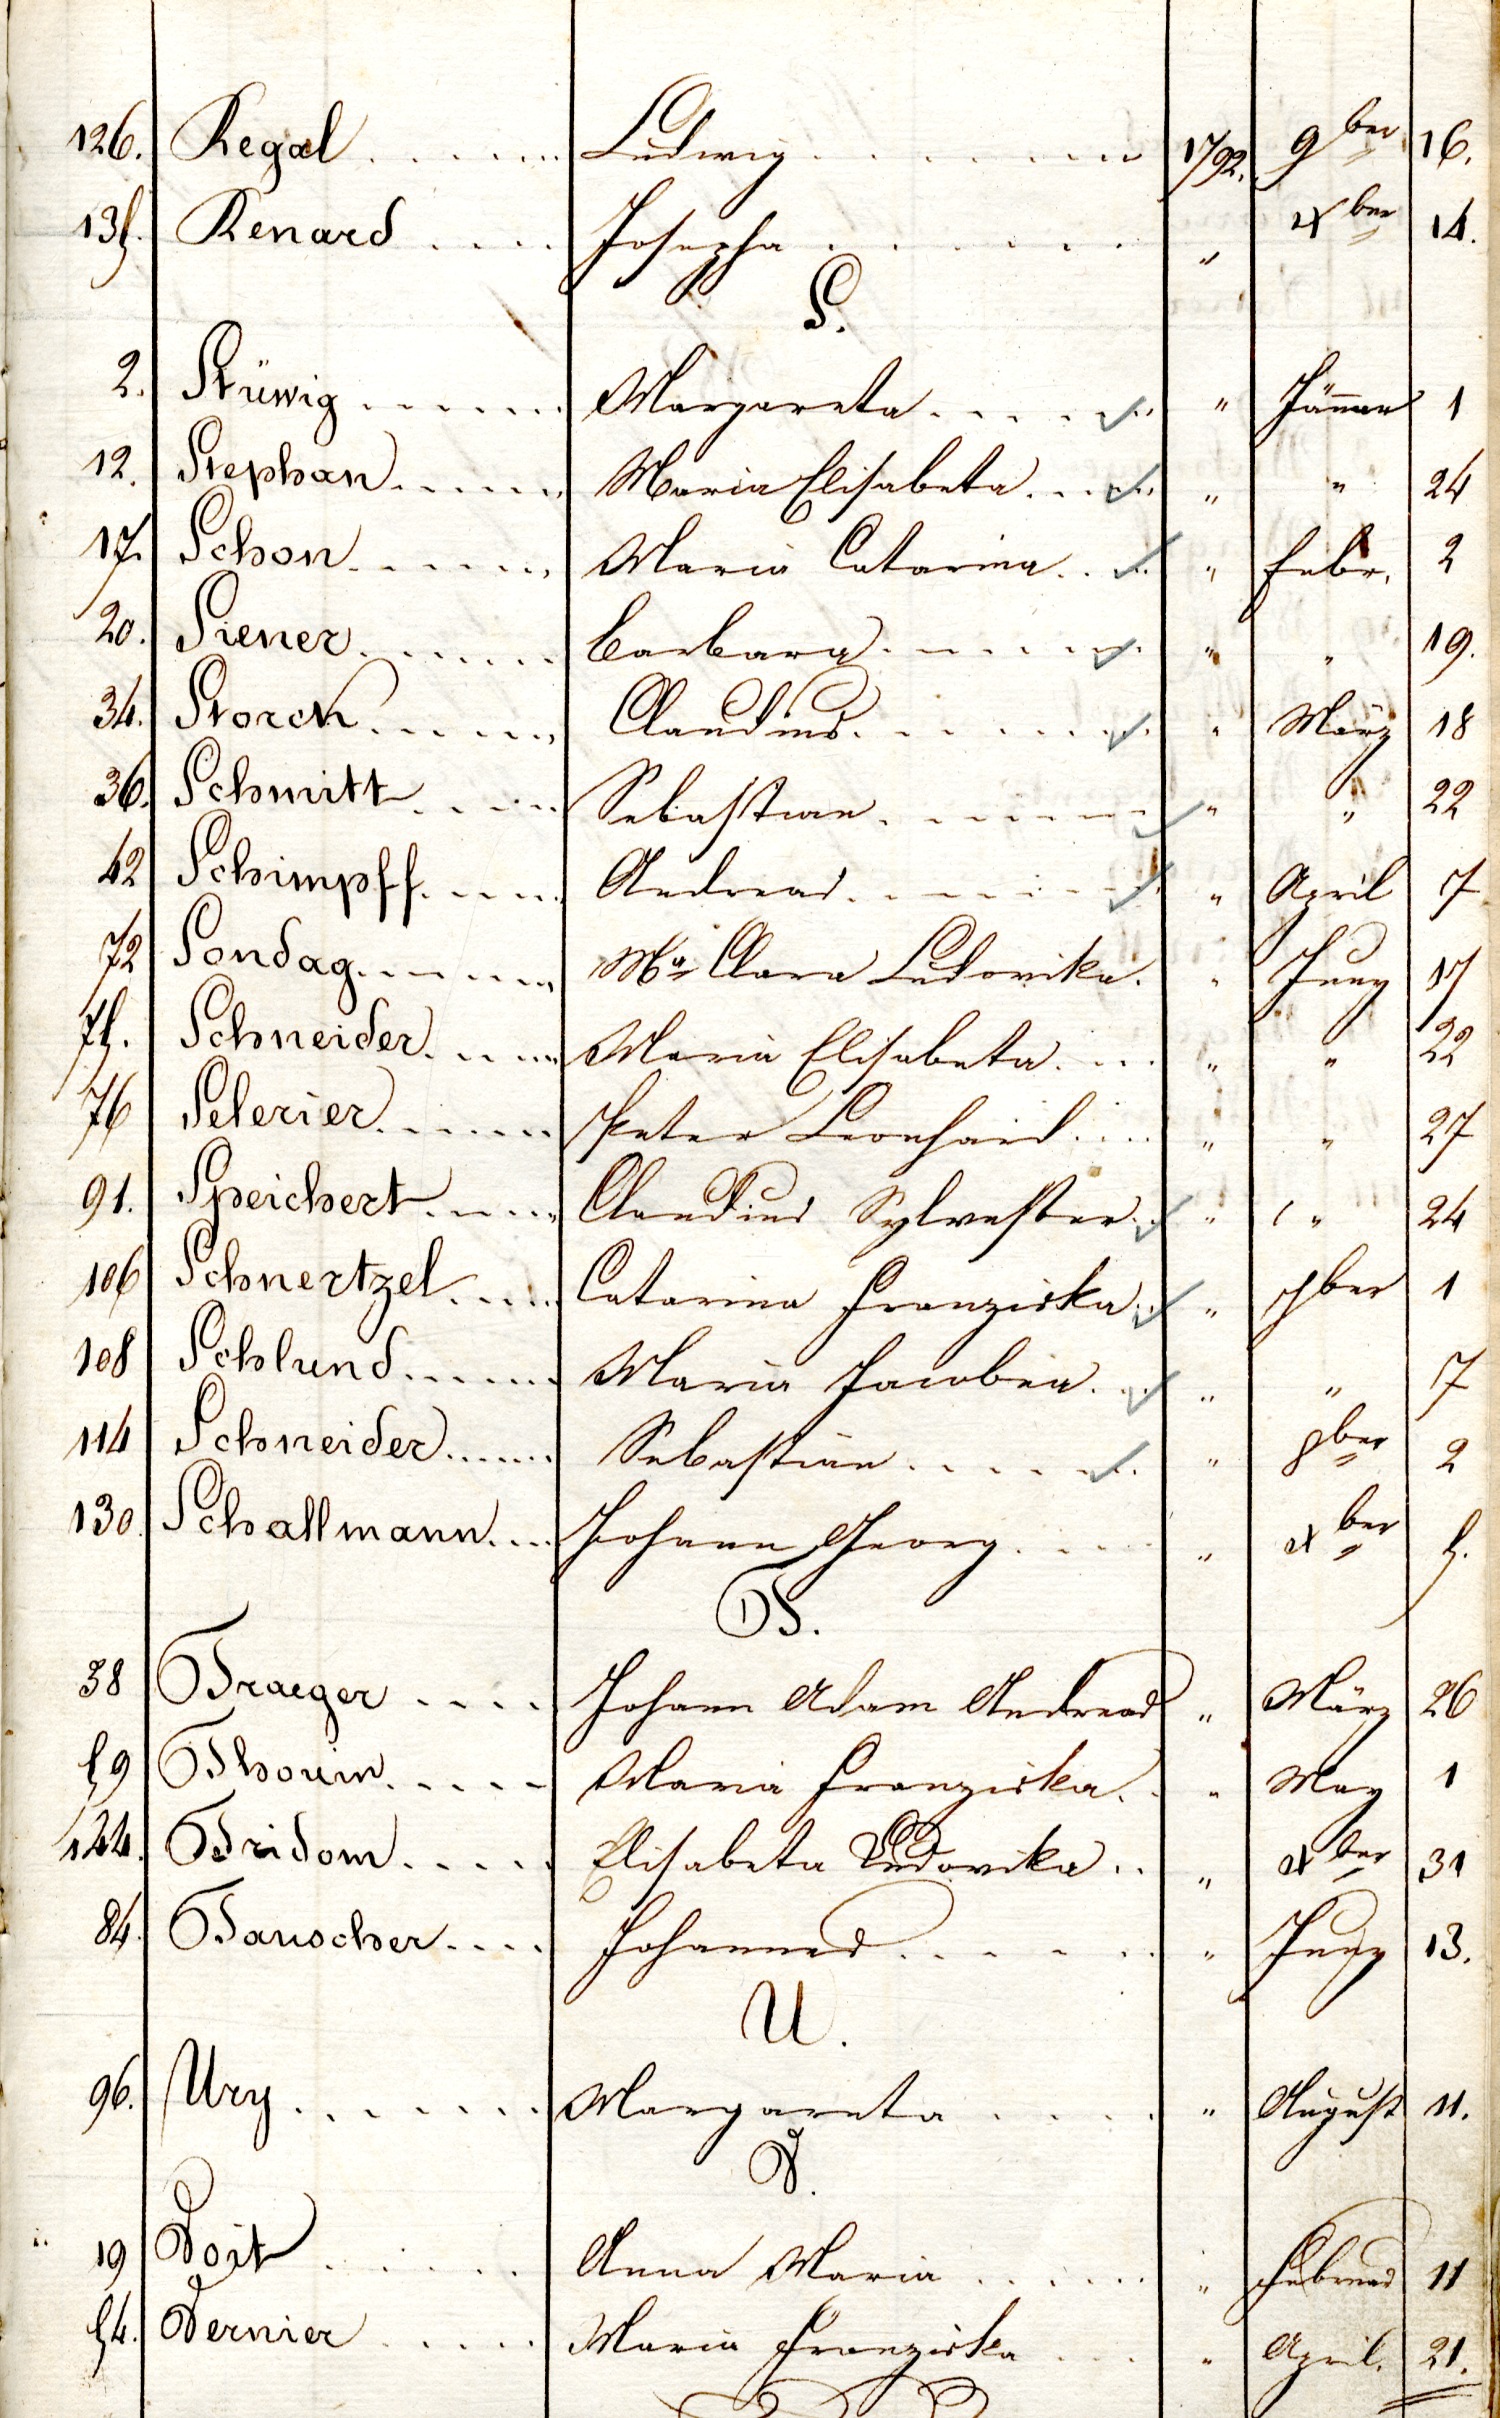 126. Regal Ludwig 1792. 9ber 16.
135. Renard Josepha " Xber 14.
S.
2. Stüwig Margareta " Jänner 1
12. Stephan Maria Elisabeta " " 24
17. Schon Maria Catarina " Febr. 2
20. Siener Barbara " " 19.
34. Storck Claudius " März 18
36. Schmitt Sebastian " " 22
42 Schimpff Andreas " April 7
72 Sondag Ma Clara Ludovika " Juny 17
75. Schneider Maria Elisabeta " " 22
76 Selerier Peter Leonhard " " 27
91. Speichert Claudius Sylvester " " 24
106 Schnertzel Catarina Franziska " 7ber 1
108 Schlund Maria Jacobea " " 7
114 Schneider Sebastian " 8ber 2
130. Schallmann Johann Georg " Xber 5.
T.
38 Traeger Johann Adam Andreas " März 26
59 Thouin Maria Franziska " May 1
144. Tridom Elisabeta Ludovika " Xber 31
84. Tauscher Johannes " July 13.
U.
96. Ury Margareta " August 11.
V.
19 Voit Anna Maria " Februar 11
54. Vernier Maria Franziska " April. 21.